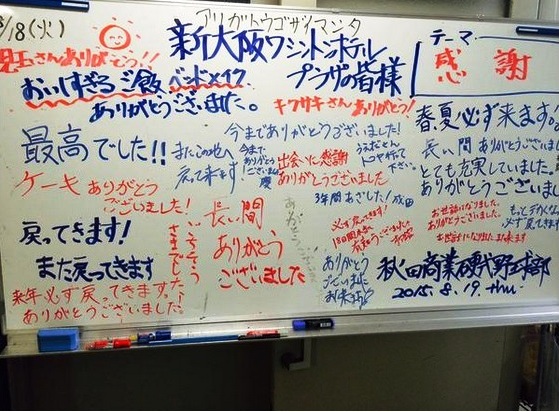 /18(火)
アリガトウゴザイマシタ
新大阪ワシントンホテル
プラザの皆様
テーマ
感謝
児玉さんありがとう!!
おいしすぎるご飯
ありがとうございました。
キワサキさん ありがとう!
春、夏必ず来ます。
最高でした!!
またこの地へ
戻って来ます
今までありがとうございました!
今まで
ありがとう
出会いに感謝
ありがとうございました
長い間 ありがとうございました
とても充実していました。
ありがとうございました
ケーキ ありがとう
ございました!
3年間あざした! 成田
長い間
ありがとう
ございました
必ず戻ってきます!
お世話になりました。
ありがとうございました。
もっとデカくなって
必ず戻ってきます
戻ってきます!
また戻ってきます
ごちそう
さまでした
来年必ず戻ってきます。
ありがとうございました。
ありがとう
ございました
秋田商業硬式野球部
2015.8.19. thu.